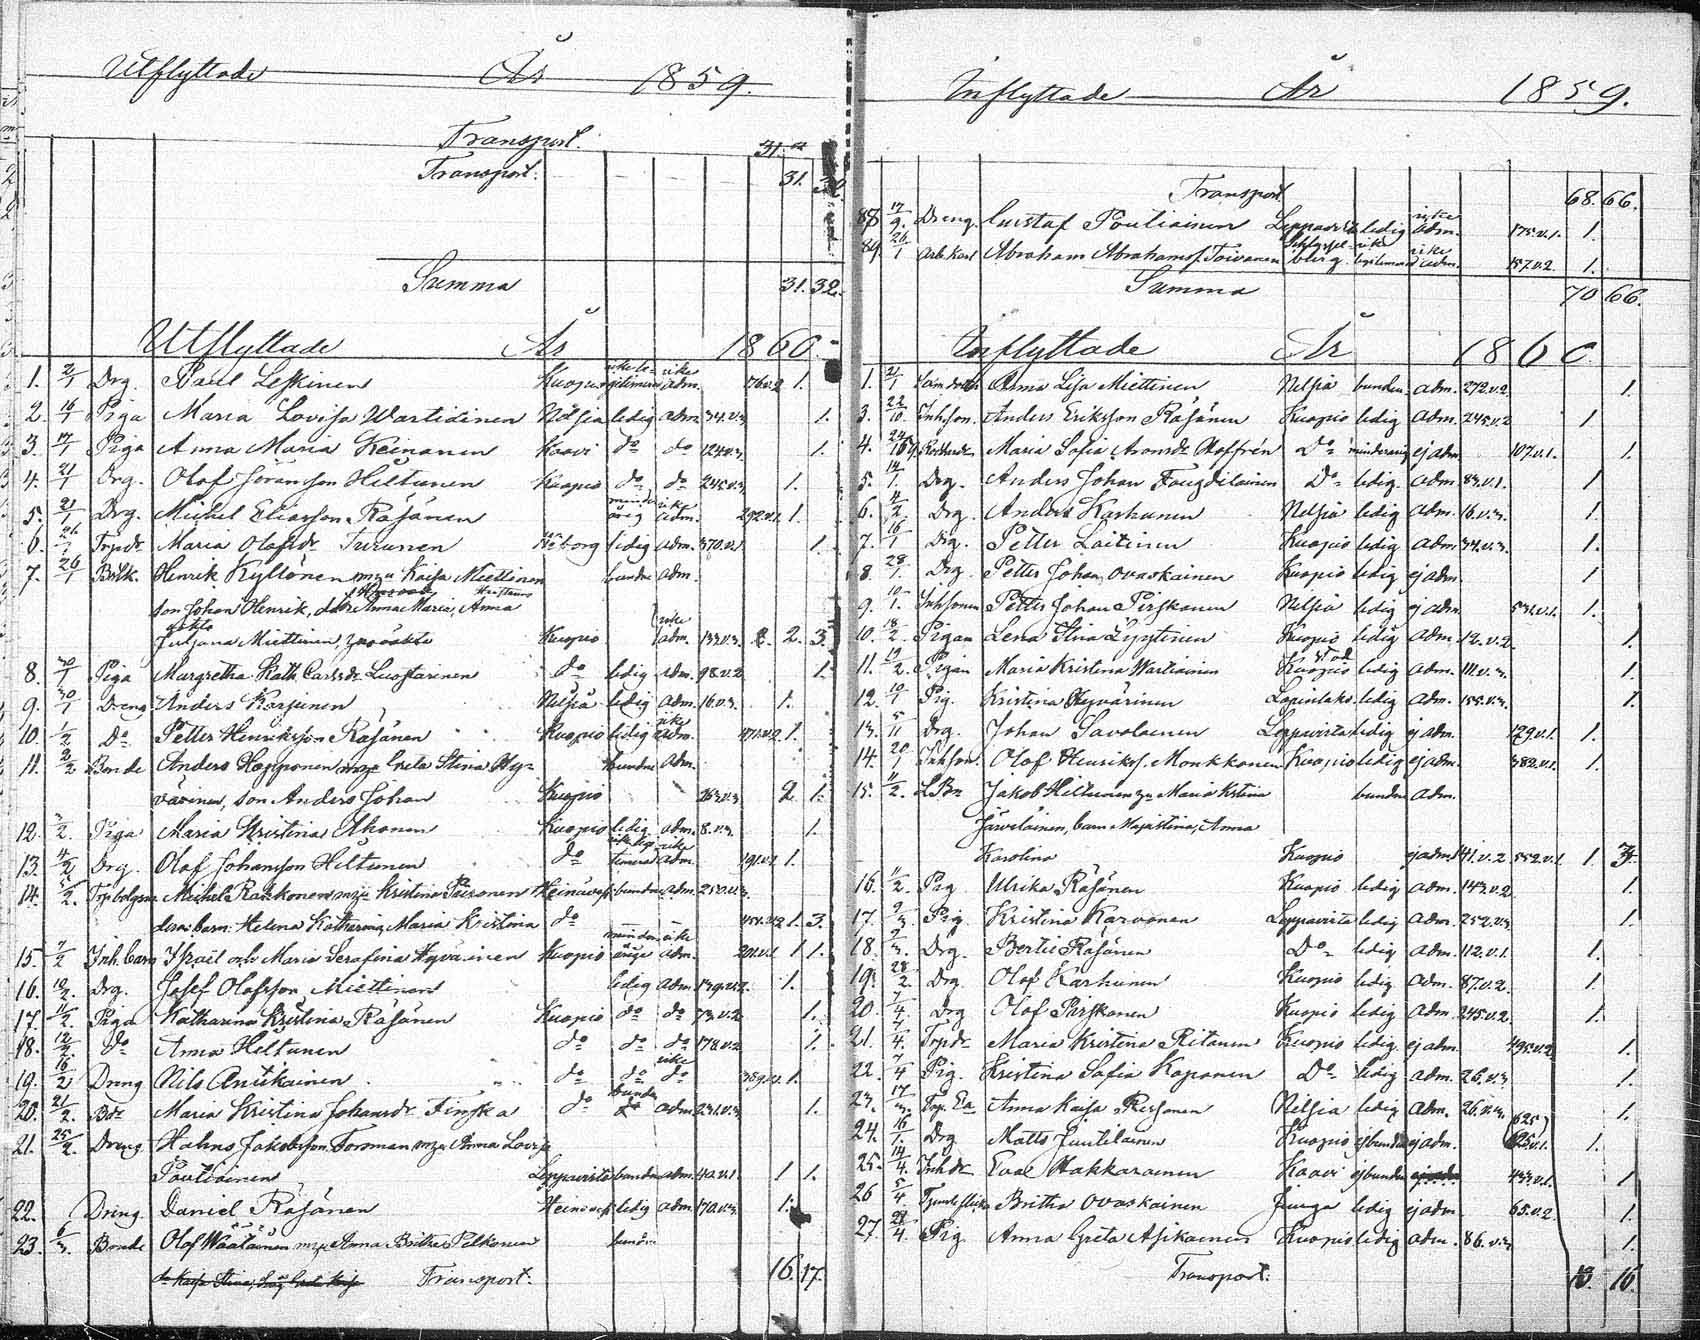 Utflyttade År 1859.
Transport. 31.
Transport. 31.
Summa 31. 32.
Utflyttade År 1860.
1. 2/1 Drg. Paul Leskinen Kuopio adm. 76.v.2 1.
2. 16/1 Piga Maria Lovisa Wartiainen Nilsia ledig adm. 34.v.3. 1.
3. 17/1 Piga Anna Maria Keinanen Kaavi do do 124.v.3. 1.
4. 21/1 Drg. Olof Joransson Hiltunen Kuopio do do 245.v.3. 1.
5. 21/1 Drg. Michel Eliasson Räsänen adm. 292.v.1. 1.
6. 26/1 Maria Olofsdr Turunen ledig adm. 370.v. 1.
7. 26/1 Henrik Kyllönen m. Kaisa Miettinen bundne adm.
son Johan Henrik, Anna Maria, Anna
Juljana Miettinen, Kuopio adm. 2. 3.
8. 30/1 Piga Margretha Kath. Carlsdr Lustarinen do ledig adm. 98.v.2 1.
9. 30/1 Dreng Anders Karjunen Nilsiä ledig adm. 16.v.3. 1.
10. 1/2 Do Petter Henriksson Räsänen Kuopio ledig adm. 1.
11. 2/2 Bonde Anders Happonen m. Greta Stina Hy= bundne adm.
värinen, son Anders Johan Kuopio 2 1.
12. 3/2. Piga Maria Kristina Ahonen Kuopio ledig adm. 8.v.3. 1.
13. 4/2 Drg. Olof Johansson Hiltunen do adm. 191.v.2 1.
14. 5/2. Michel Rakkonen m. Kristina Piironen bundne adm. 250.v.3.
barn: Helena Katharina, Maria Kristina do 1. 3.
15. 7/2 Inh. barn Israël och Maria Serafina Hyvärinen Kuopio adm. 201.v.1 1 1.
16. 10/2. Drg. Josef Olofsson Miettinen ledig adm. 139.v.2. 1.
17. 11/2. Piga Katharina Kristina Räsänen Kuopio do do 73.v.2 1.
18. 12/2. do Anna Hiltunen do do do 178.v.2 1.
19. 16/2 Dreng Nils Antikainen do do do 389.v.1. 1.
20. 21/2. Maria Kristina Johansdr Finska do do adm. 231.v.3. 1.
21. 25/2. Dreng Forsman m. Anna Lovisa
Poutiainen Leppävirta bundne adm. 42.v.1. 1 1.
22. Dreng. Daniel Räsänen ledig adm. 170.v.3. 1.
23. 6/3. Bonde Olof Wäätäinen m. Anna Britha Pelkonen bundne
Transport. 16. 17.
Inflyttade År 1859.
Transport 68. 66.
88 17/9. Dreng. Gustaf Poutiainen Leppävirta ledig adm. 175.v.1. 1.
89. 26/1 Arb. karl Abraham Abrahamss. Toivanen adm. 157.v.2. 1.
Summa 70 66.
Inflyttade År 1860
1. 2/1 Anna Lisa Miettinen Nilsiä bunden adm. 272.v.2. 1.
3. 22/10. Inh.son. Anders Eriksson Räsänen Kuopio ledig adm. 245.v.2 1
4. Maria Sofia Aronsdr Hoffrén Do ej adm. 107.v.1. 1
5. 14/1. Drg. Anders Johan Do ledig adm. 83.v.1. 1
6. 4/2 Drg. Anders Karhunen Nilsiä ledig adm. 16.v.3. 1
7. 16/1 Drg. Petter Laitinen Kuopio ledig adm. 34.v.3. 1.
8. 28/1. Drg Petter Johan Ovaskainen Kuopio ledig ej adm. 1
9. 10/1. Inh.sonen Petter Johan Pirskanen Nilsiä ledig ej adm. 1.
10. 18/2. Pigan Lena Stina Lyytinen Kuopio ledig adm. 12.v.2. 1.
11. 19/2. Pigan Maria Kristina Wartiainen Kuopio stad ledig adm. 111.v.3. 1.
12. 10/1 Pig. Kristina Hyvärinen Lapinlaks ledig adm. 155.v.3. 1.
13. 5/11 Drg. Johan Savolainen Leppävirta ledig ej adm. 129.v.1. 1
14. 20/1 Inh.son. Olof Henrikss. Monkkonen Kuopio ledig ej adm. 382.v.1. 1.
15. 11/2. Jakob Hiltunen Maria Kristina bundne adm.
Järveläinen, barn Maja Stina, Anna
Karolina Kuopio ej adm. 141.v.2 552.v.1. 1 3.
16. 11/2. Pig Ulrika Räsänen Kuopio ledig adm. 143.v.2 1.
17. 9/3. Pig. Kristina Karvonen Leppävirta ledig adm. 252.v.3. 1.
18. 9/3. Drg. Bertil Räsänen Do ledig adm. 112.v.1. 1.
19. 28/2. Drg. Olof Karhunen Kuopio ledig adm. 87.v.2. 1.
20. 7/4. Drg Olof Pirskanen Kuopio ledig adm. 245.v.2. 1.
21. 7/4. Maria Kristina Ritanen Kuopio ledig. ej adm. 495.v.2. 1.
22. 7/4 Pig. Kristina Sofia Koponen Do ledig adm. 26.v.3. 1.
23. 17/3. Anna Kaisa Nilsia ledig adm. 26.v.3. 1.
24. 16/1. Drg Matts Juutilainen Kuopio ej adm. (625) 625.v.1. 1.
25. 14/4. Inh.dr Eva Hakkarainen Kaavi ej bunden 433.v.1. 1
26 5/4 Britha Ovaskainen Juuga ledig ej adm. 65.v.2. 1.
27. 28/4. Pig Anna Greta Asikainen Kuopio ledig adm. 86.v.3. 1.
Transport. 16.